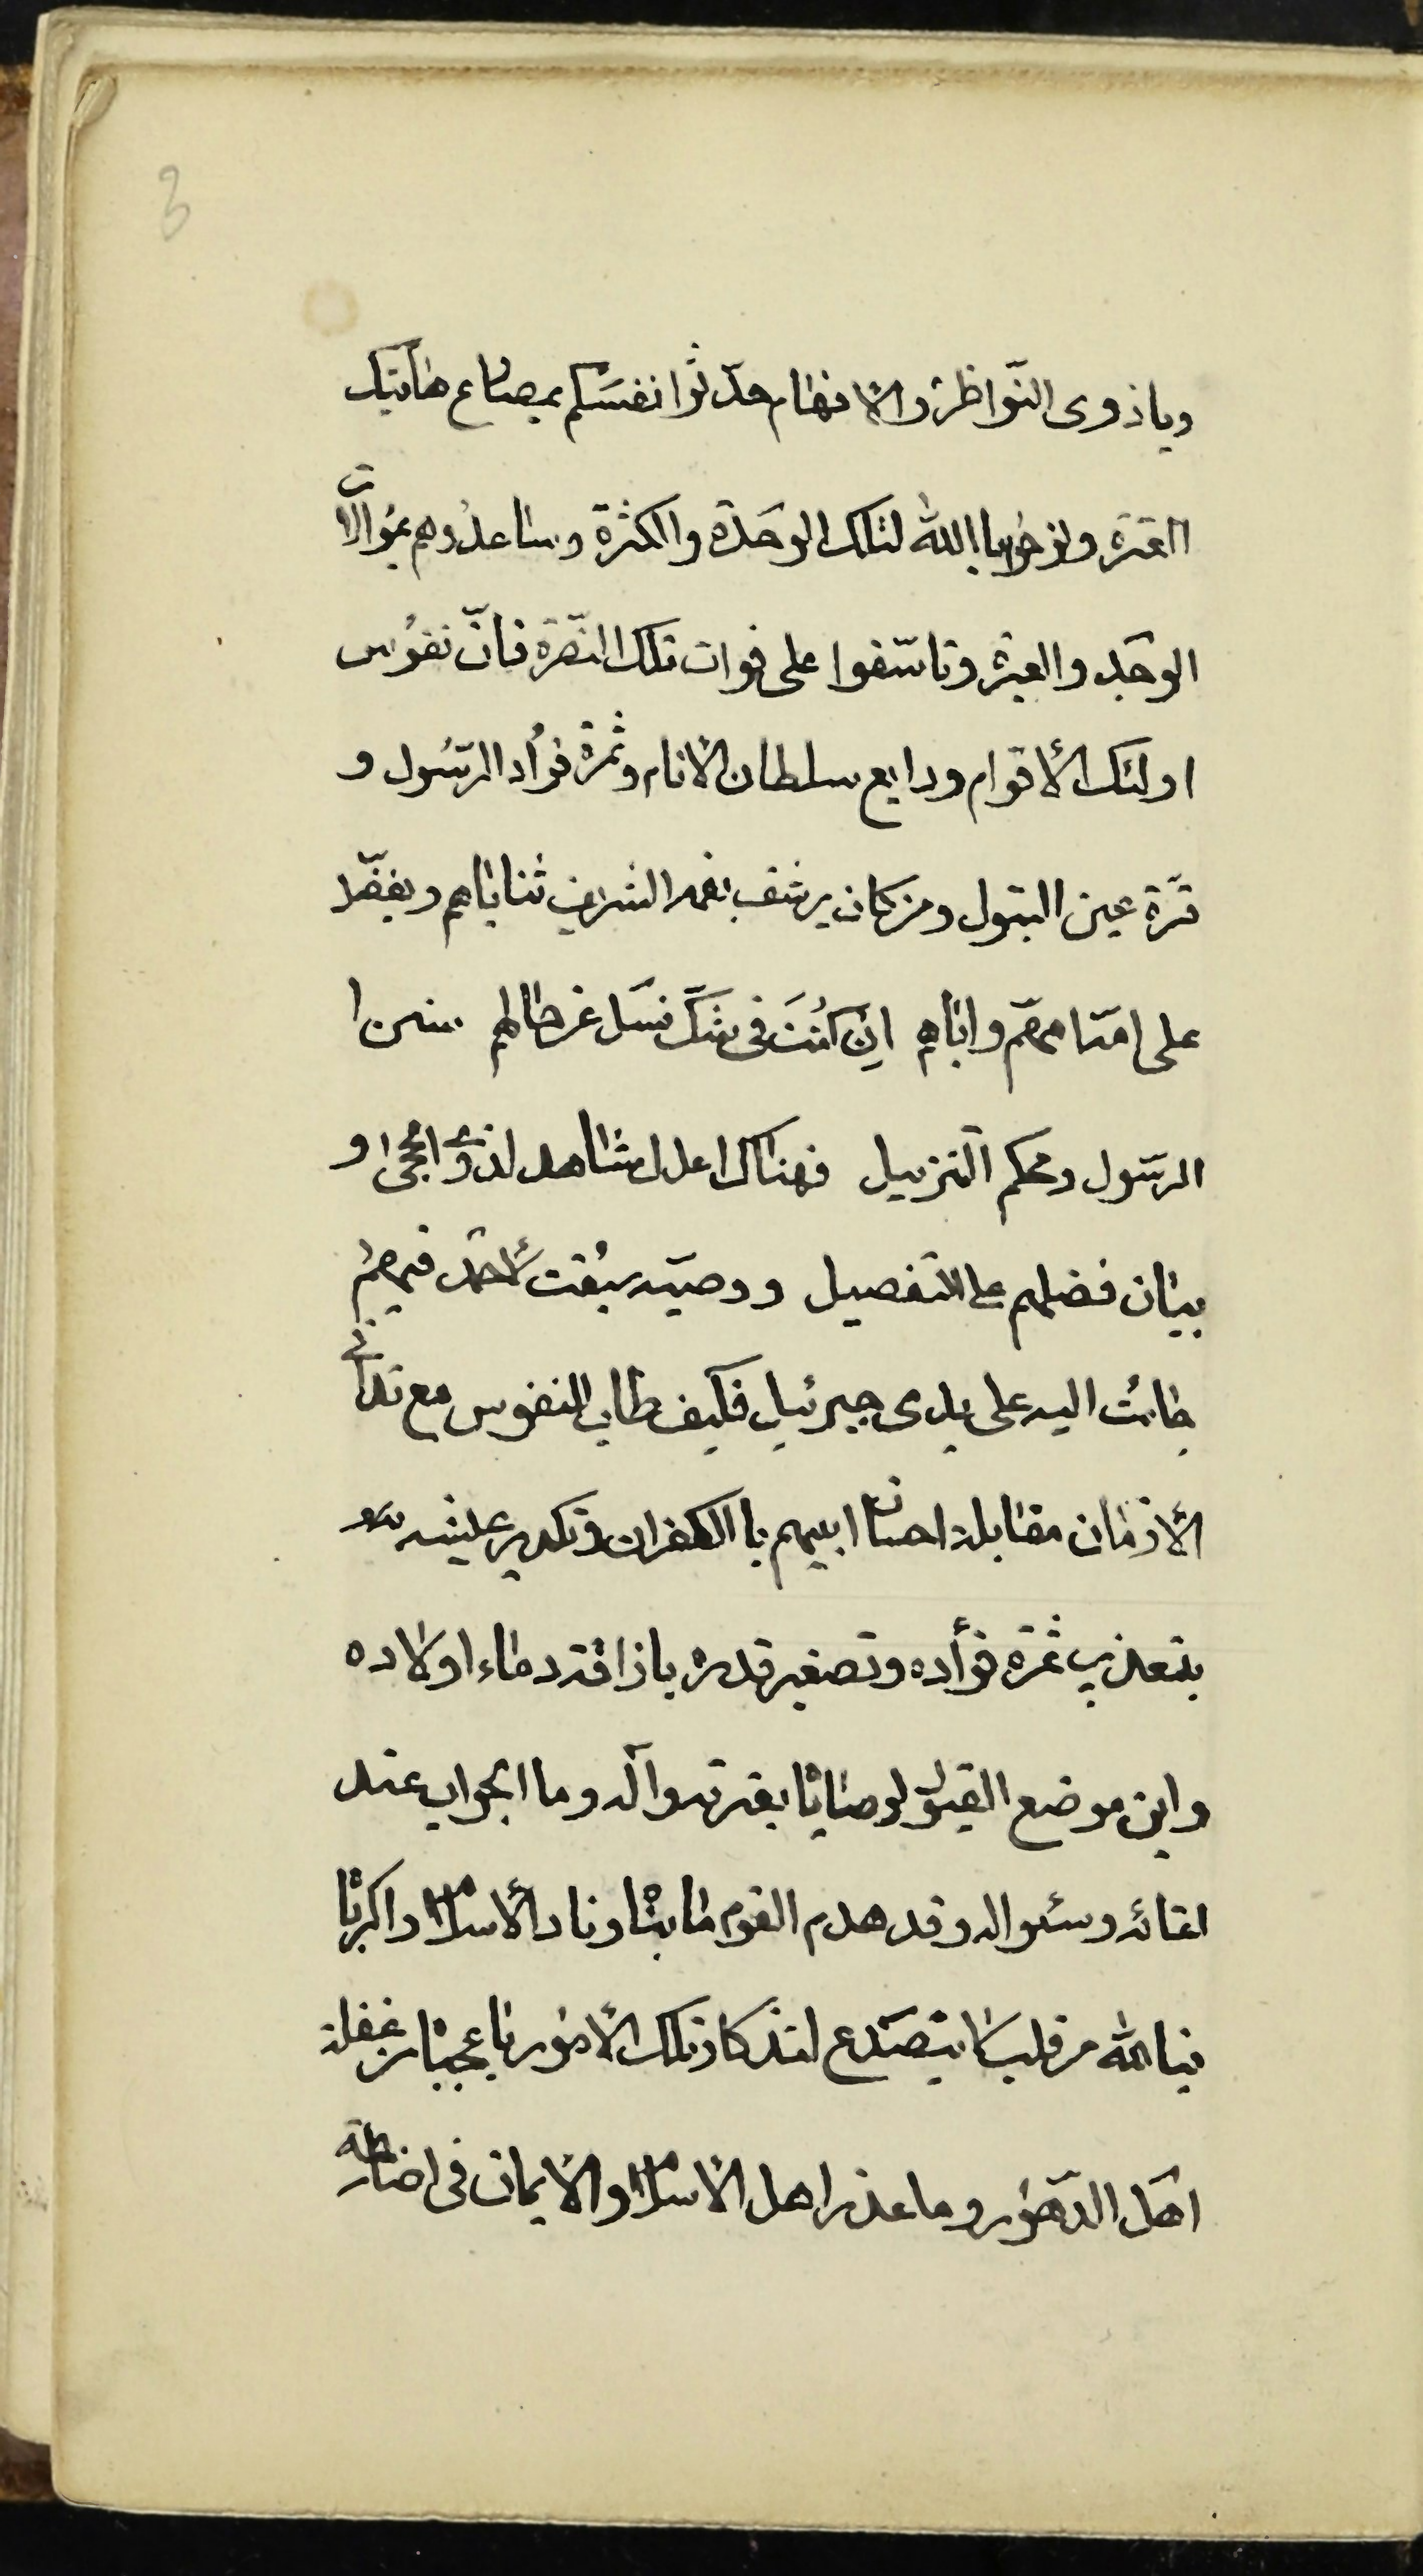 3
ويا ذوى النّواظر والافهام حدّثوا انفسكم بمصارع هاتيك
العترة ونوحوا بالله لتلك الوحدة والكثرة وساعدوهم بموالات
الوجد والعبرة وتاسّفوا على فوات تلك النّصرة فانّ نفوس
اولئك الأقوام ودايع سلطان الأنام وثمرة فؤاد الرّسول و
قرّة عين البتول ومن كان يرشف بفمه الشريف ثناياهم ويفضّل
على امّته امهم واباهم ان كُنتَ فى شكّ فسَل عن حالهم سنن ا
الرّسول ومحكم التنزيل فهناك اعدل شاهد لذوى الحجى و
بيان فضلهم على التفصيل ووصيّة سبقت لأحمد فيهم
جاءت اليه على يدى جبرئيل فكيف طاب النفوس مع تدانى
الأزمان مقابلة احسان ابيهم با الكفران وتكدير عيشه
بتعذيب ثمرة فؤاده وتصغير قدره باراقة دماء اولاده
واين موضع القبول لوصاياه بعترته وآله وما الجواب عند
لقائه وسئواله وقد هدم القوم ما بناه ونادا الأسلام واكرباه
فيالله من قلب لا يتصدّع لتذكار تلك الأمور ويا عجباه من غفلة
اهل الدّهور وما عذر اهل الأسلام والأيمان فى اضاعة